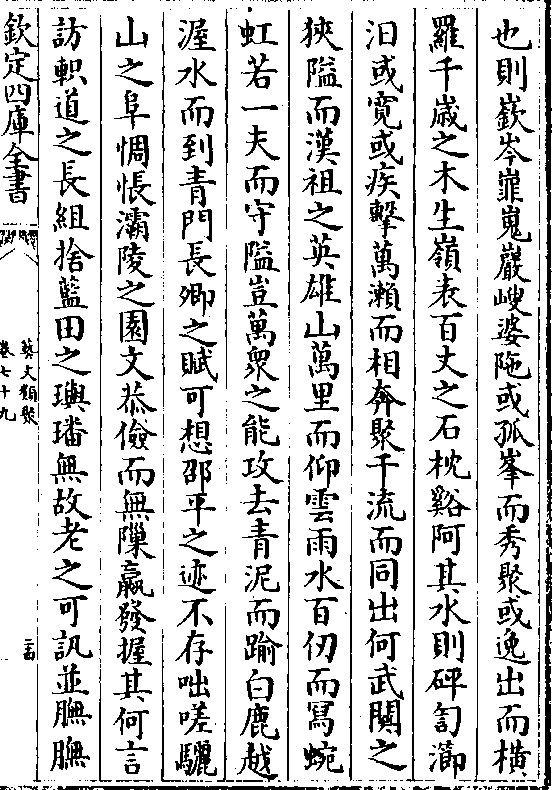 也則嶔岑嶵嵬巖崚婆陁或孤峯而秀聚或逸出而横
羅千嵗之木生嶺表百丈之石枕谿阿其水則砰訇㵧
汨或寛或疾擊萬瀬而相奔聚千流而同出何武關之
狹隘而漢祖之英雄山萬里而仰雲雨水百仞而冩蜿
虹若一夫而守隘豈萬衆之能攻去青泥而踰白鹿越
滻水而到青門長卿之賦可想邵平之迹不存咄嗟驪
山之阜惆悵灞陵之園文恭儉而無隟嬴發握其何言
訪軹道之長組捨藍田之璵璠無故老之可訊並膴膴
欽定四庫全書
藝文類聚
卷七十九